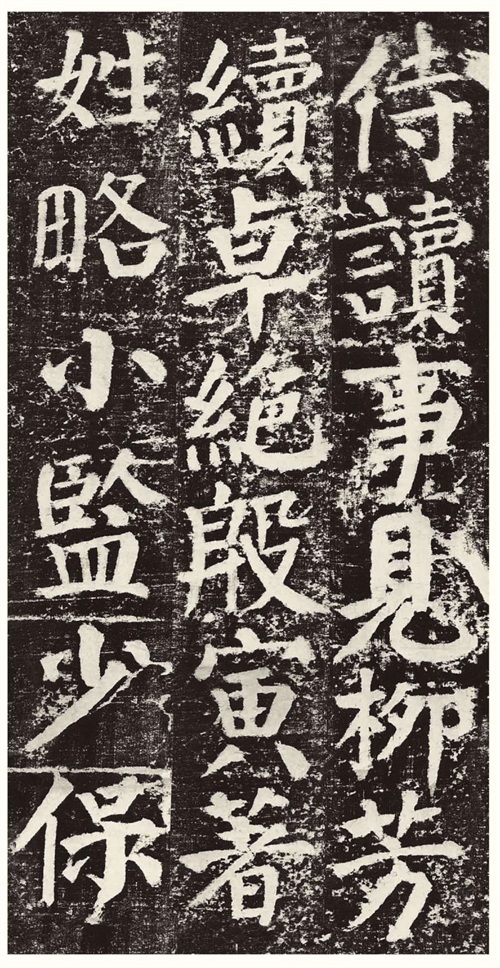 侍讀事見柳芳
續卓絕殷寅著
姓略小監少保